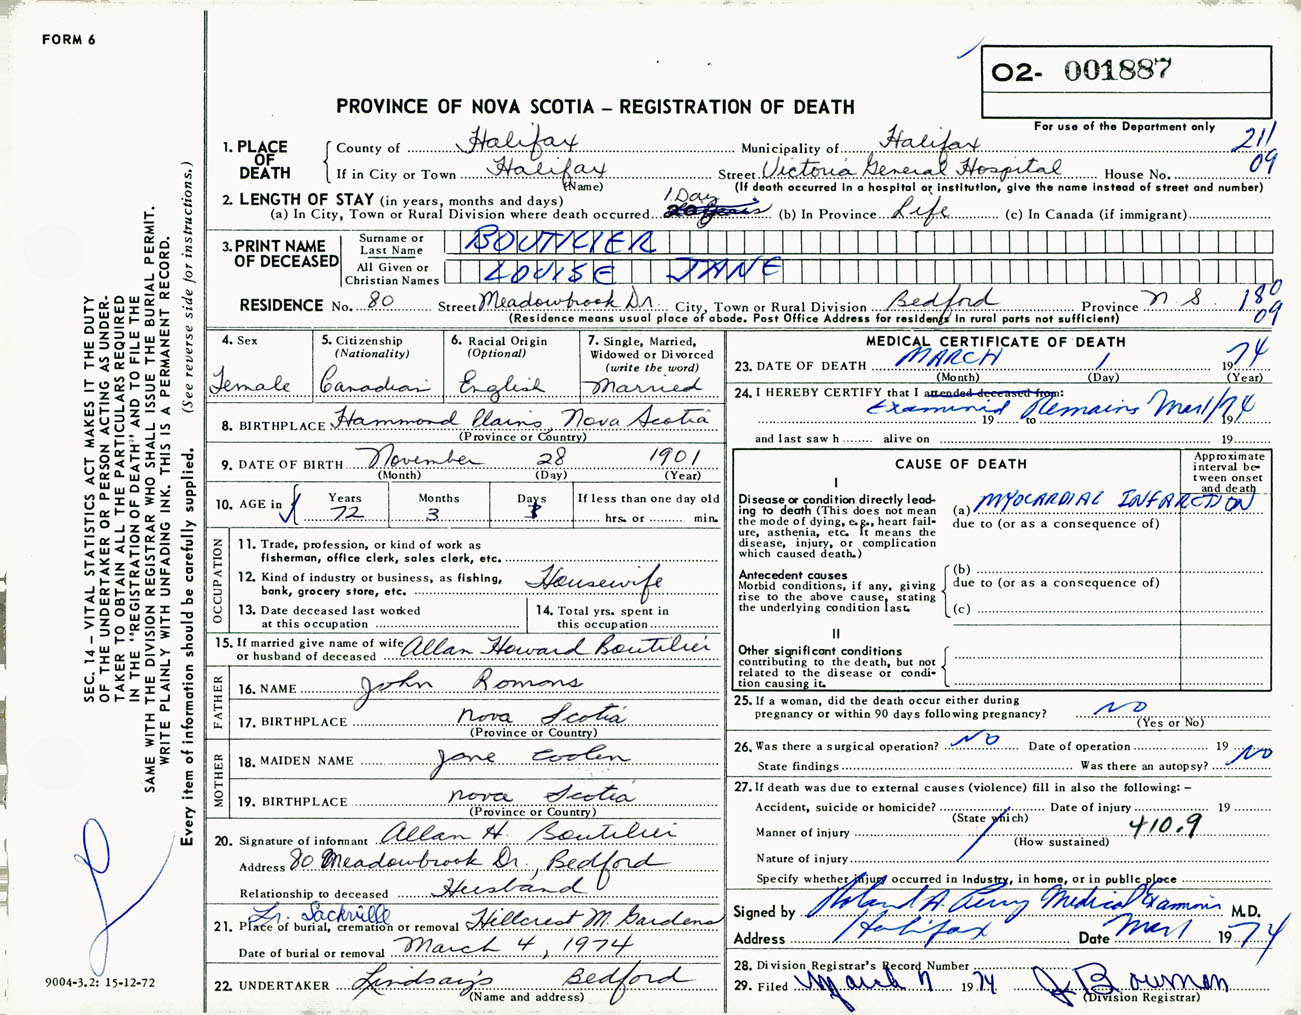 FORM 6
O2- 001887
PROVINCE OF NOVA SCOTIA – REGISTRATION OF DEATH
For use of the Department only
211
09
1. PLACE OF DEATH
County of Halifax Municipality of Halifax
If in City or Town Halifax Street Victoria General Hospital House No.
(Name) (If death occurred in a hospital or institution, give the name instead of street and number)
2. LENGTH OF STAY (in years, months and days)
1 Day
(a) In City, Town or Rural Division where death occurred 20 years (b) In Province Life (c) In Canada (if immigrant)
3. PRINT NAME OF DECEASED
Surname or Last Name BOUTILIER
All Given or Christian Names LOUISE JANE
RESIDENCE No. 80 Street Meadowbrook Dr. City, Town or Rural Division Bedford Province N.S.
180
09
(Residence means usual place of abode. Post Office Address for residents in rural parts not sufficient)
4. Sex
Female
5. Citizenship
(Nationality)
Canadian
6. Racial Origin
(Optional)
English
7. Single, Married,
Widowed or Divorced
(write the word)
Married
8. BIRTHPLACE Hammond Plains, Nova Scotia
(Province or Country)
9. DATE OF BIRTH November 28 1901
(Month) (Day) (Year)
10. AGE in
Years Months Days If less than one day old
72 3 hrs. or min.
OCCUPATION
11. Trade, profession, or kind of work as
fisherman, office clerk, sales clerk, etc.
12. Kind of industry or business, as fishing,
bank, grocery store, etc. Housewife
13. Date deceased last worked
at this occupation
14. Total yrs. spent in
this occupation
15. If married give name of wife
or husband of deceased Allan Howard Boutilier
FATHER
16. NAME John Romans
17. BIRTHPLACE Nova Scotia
(Province or Country)
MOTHER
18. MAIDEN NAME Jane Coolen
19. BIRTHPLACE Nova Scotia
(Province or Country)
20. Signature of informant Allan H. Boutilier
Address 80 Meadowbrook Dr., Bedford
Relationship to deceased Husband
Lr. Sackville
21. Place of burial, cremation or removal Hillcrest M. Gardens
Date of burial or removal March 4, 1974
22. UNDERTAKER Lindsay's Bedford
(Name and address)
MEDICAL CERTIFICATE OF DEATH
23. DATE OF DEATH MARCH 1 1974
(Month) (Day) (Year)
24. I HEREBY CERTIFY that I attended deceased from:
Examined Remains Mar 1/74
19 to 19
and last saw h alive on 19
CAUSE OF DEATH
Approximate interval between onset and death
I
Disease or condition directly leading to death (This does not mean the mode of dying, e.g., heart failure, asthenia, etc. It means the disease, injury, or complication which caused death.)
(a) MYOCARDIAL INFARCTION
due to (or as a consequence of)
Antecedent causes
Morbid conditions, if any, giving rise to the above cause, stating the underlying condition last.
(b)
due to (or as a consequence of)
(c)
II
Other significant conditions
contributing to the death, but not related to the disease or condition causing it.
25. If a woman, did the death occur either during
pregnancy or within 90 days following pregnancy? NO
(Yes or No)
26. Was there a surgical operation? NO Date of operation 19
State findings Was there an autopsy? NO
27. If death was due to external causes (violence) fill in also the following: –
Accident, suicide or homicide? Date of injury 19
(State which)
Manner of injury 410.9
(How sustained)
Nature of injury
Specify whether injury occurred in Industry, in home, or in public place
Signed by Roland A. Perry Medical Examiner M.D.
Address Halifax Date Mar 1 1974
28. Division Registrar's Record Number
29. Filed March 7 1974 J. Bowman
(Division Registrar)
SEC. 14 – VITAL STATISTICS ACT MAKES IT THE DUTY
OF THE UNDERTAKER OR PERSON ACTING AS UNDER-
TAKER TO OBTAIN ALL THE PARTICULARS REQUIRED
IN THE "REGISTRATION OF DEATH" AND TO FILE THE
SAME WITH THE DIVISION REGISTRAR WHO SHALL ISSUE THE BURIAL PERMIT.
WRITE PLAINLY WITH UNFADING INK. THIS IS A PERMANENT RECORD.
Every item of information should be carefully supplied. (See reverse side for instructions.)
9004-3.2: 15-12-72